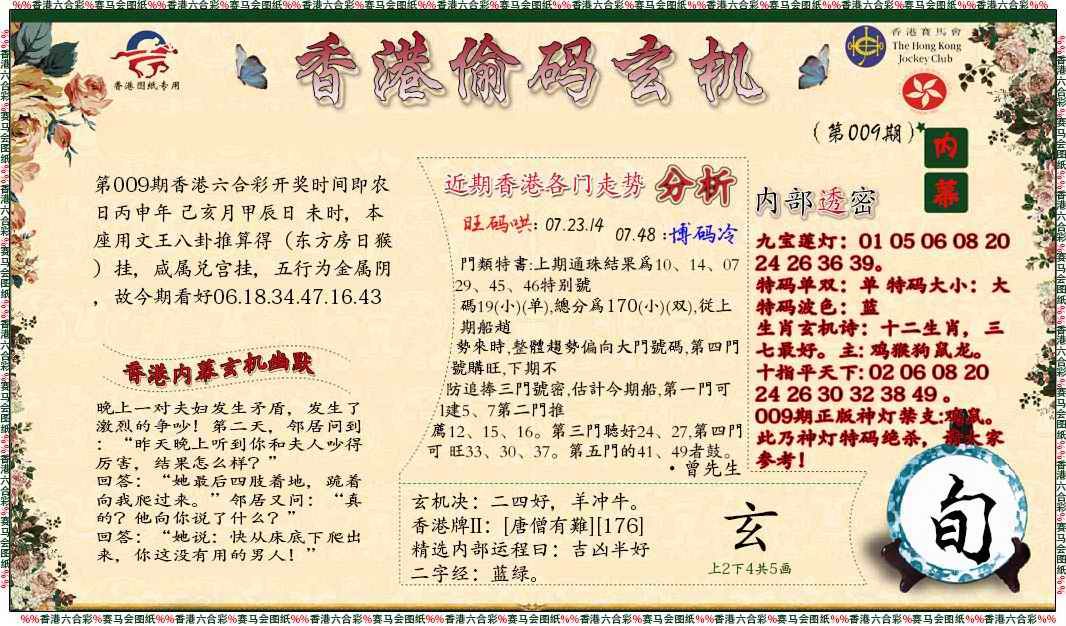 %%香港六合彩%赛马会图纸%%香港六合彩%赛马会图纸%%香港六合彩%赛马会图纸%%香港六合彩%赛马会图纸%%香港六合彩%赛马会图纸%%香港六合彩%%
香港图纸专用
香港偷码玄机
香港賽馬會
The Hong Kong
Jockey Club
(第009期)
内
幕
第009期香港六合彩开奖时间即农
日丙申年 己亥月甲辰日 未时，本
座用文王八卦推算得（东方房日猴
）挂，咸属兑宫挂，五行为金属阴
，故今期看好06.18.34.47.16.43
香港内幕玄机幽默
晚上一对夫妇发生矛盾，发生了
激烈的争吵！第二天，邻居问到
：“昨天晚上听到你和夫人吵得
厉害，结果怎么样？”
回答：“她最后四肢着地，跪着
向我爬过来。”邻居又问：“真
的？他向你说了什么？”
回答：“她说：快从床底下爬出
来，你这没有用的男人！”
近期香港各门走势 分析
旺码哄：07.23.14
07.48：博码冷
門類特書:上期通珠結果爲10、14、07
29、45、46特别號
碼19(小)(单),總分爲170(小)(双),從上
期船趙
勢來時,整體趨勢偏向大門號碼,第四門
號購旺,下期不
防追捧三門號密,估计今期船,第一門可
1建5、7第二門推
薦12、15、16。第三門聴好24、27,第四門
可 旺33、30、37。第五門的41、49者鼓。
·曾先生
玄机决：二四好，羊冲牛。
香港牌II：[唐僧有難][176]
精选内部运程曰：吉凶半好
二字经：蓝绿。
玄
上2下4共5画
内部透密
九宝莲灯：01 05 06 08 20
24 26 36 39。
特码单双：单 特码大小：大
特码波色：蓝
生肖玄机诗：十二生肖，三
七最好。主：鸡猴狗鼠龙。
十指平天下: 02 06 08 20
24 26 30 32 38 49 。
009期正版神灯禁支:鸡鼠。
此乃神灯特码绝杀，请大家
参考！
旬
%%香港六合彩%赛马会图纸%%香港六合彩%赛马会图纸%%香港六合彩%赛马会图纸%%香港六合彩%赛马会图纸%%香港六合彩%赛马会图纸%%香港六合彩%%